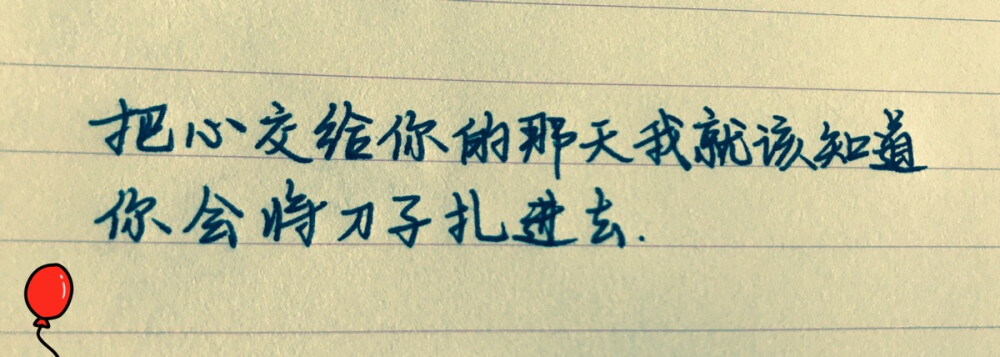 把心交给你的那天我就该知道
你会将刀子扎进去.